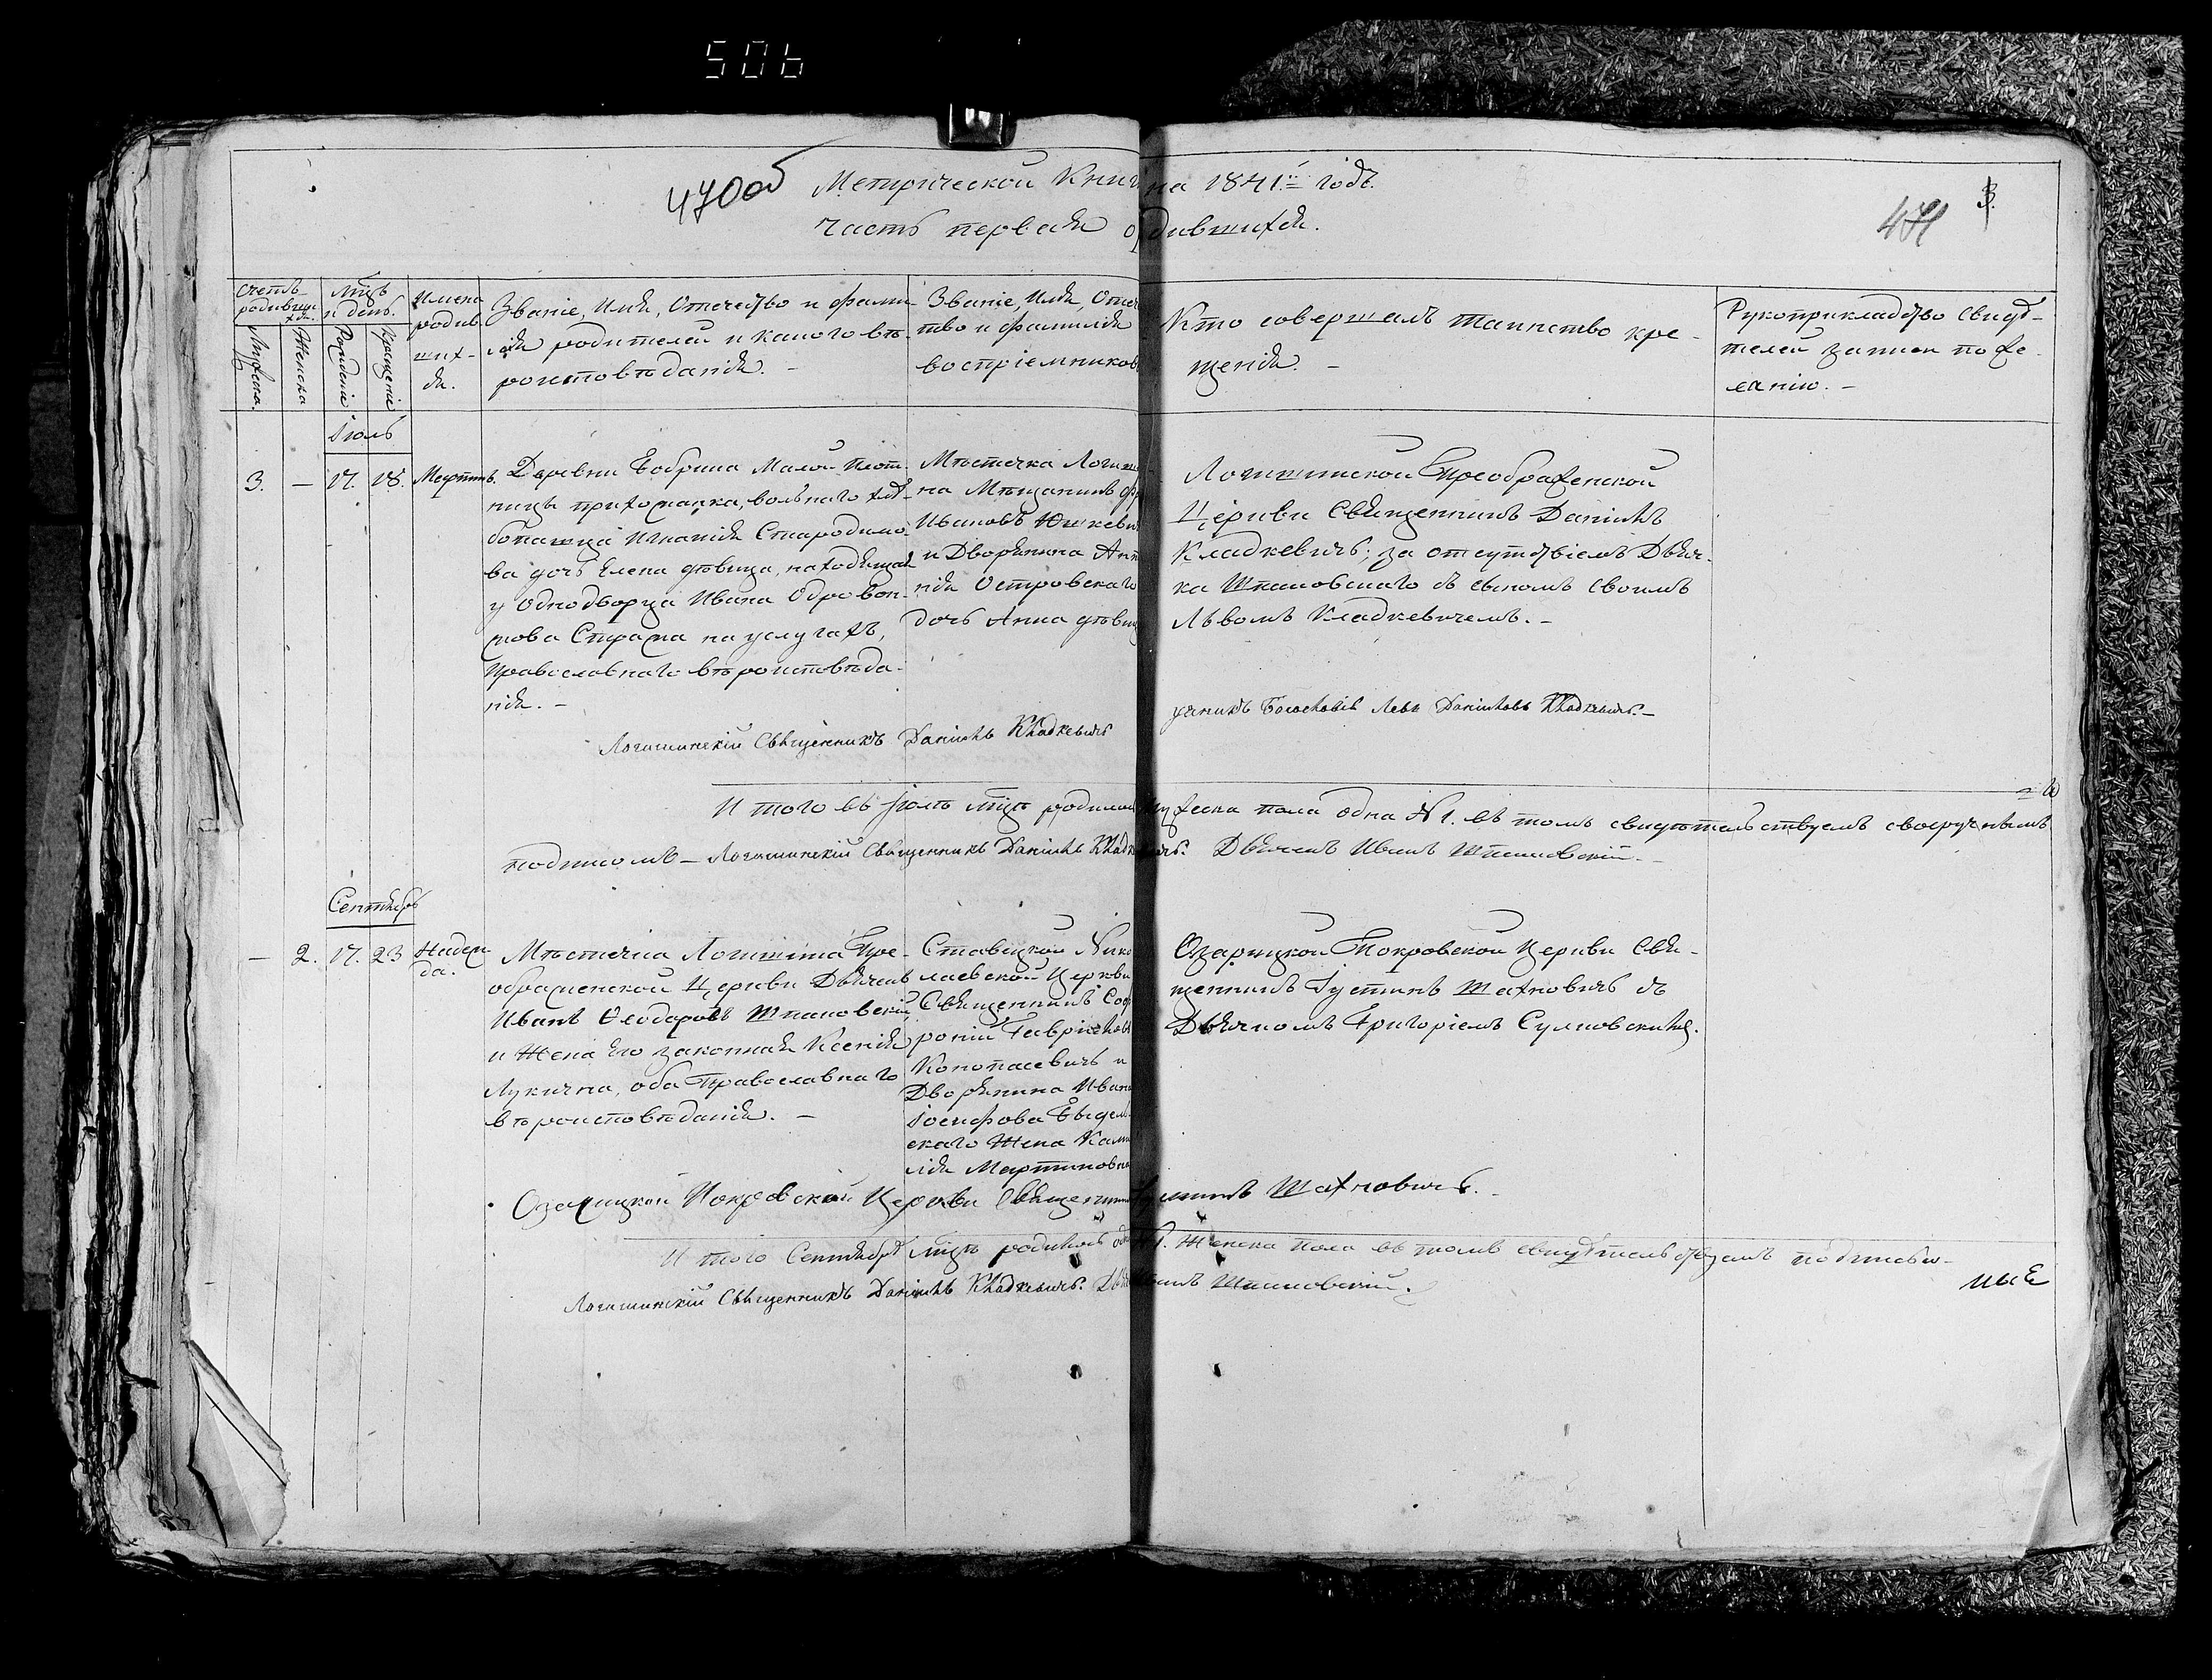 506
470об
Метрической Книги на 1841й годъ.
Часть первая о родившихся.
471
3.
Счетъ родившихся.
Мцъ и день.
Имена родившихся.
Званіе, Имя, Отечество и фамилія родителей и какого вѣроисповѣданія. –
Званіе, Имя, Отечество и фамилія воспріемниковъ
Кто совершалъ таинство крещенія. –
Рукоприкладство свидѣтелей записи по желанію. –
Мужеска.
Женска
Рожденіе
Крещеніе
Іюль
3.
–
17.
18.
Деревни Бобрика Мало-Плот-
ницы прихожанка, вольнаго хлѣ-
бопашца Игнатія Стародымо-
ва дочь Елена дѣвица, находящая
у Однодворца Ивана
на услугахъ,
Православнаго вѣроисповѣда-
нія. –
Мѣстечка Логиши-
на Мѣщанинъ
Ивановъ Юшкевичъ
и Дворянина Анто-
нія Островскаго
дочь Анна дѣвица
Логишинской Преображенской
Церкви Священникъ Даніилъ
Кладкевичъ; за отсутствіемъ Дьяч-
ка Шпаковскаго съ сыномъ своимъ
Львомъ Кладкевичемъ. –
Логишинскій Священникъ Даніилъ Кладкевичъ
ученикъ Левъ Даніиловъ Кладкевичъ. –
И того въ Іюлѣ мцѣ родилось Мужеска пола одна №1. въ томъ свидѣтельствуемъ своеручнымъ
подписомъ – Логишинскій Священникъ Даніилъ Кладкевичъ. Дьячекъ Иванъ Шпаковскій. –
Сентябрь
–
2.
17.
23
Надеж
да.
Мѣстечка Логишина Пре-
ображенской Церкви Дьячекъ
Иванъ Ѳеодоровъ Шпаковскій
и Жена Его законная Ксенія
Лукична, оба Православнаго
вѣроисповѣданія. –
Ставецкой Нико
лаевской Церкви
Священникъ Соф
роній Гавріиловъ
Конопасевичъ и
Дворянина Ивана
Іосифова
скаго Жена Ками
лія Мартиновна
Озарицкой Покровской Церкви Свя-
щенникъ Іустинъ Шахновичъ съ
Дьячкомъ Григоріемъ Сулковскимъ.
Озарицкой Покровской Церкви Священникъ Іустинъ Шахновичъ. –
И того Сентября мцѣ родилось одна №1. Женска пола въ томъ свидѣтельствуемъ подписью –
Логишинскій Священникъ Даніилъ Кладкевичъ. Дьячекъ Иванъ Шпаковскій.